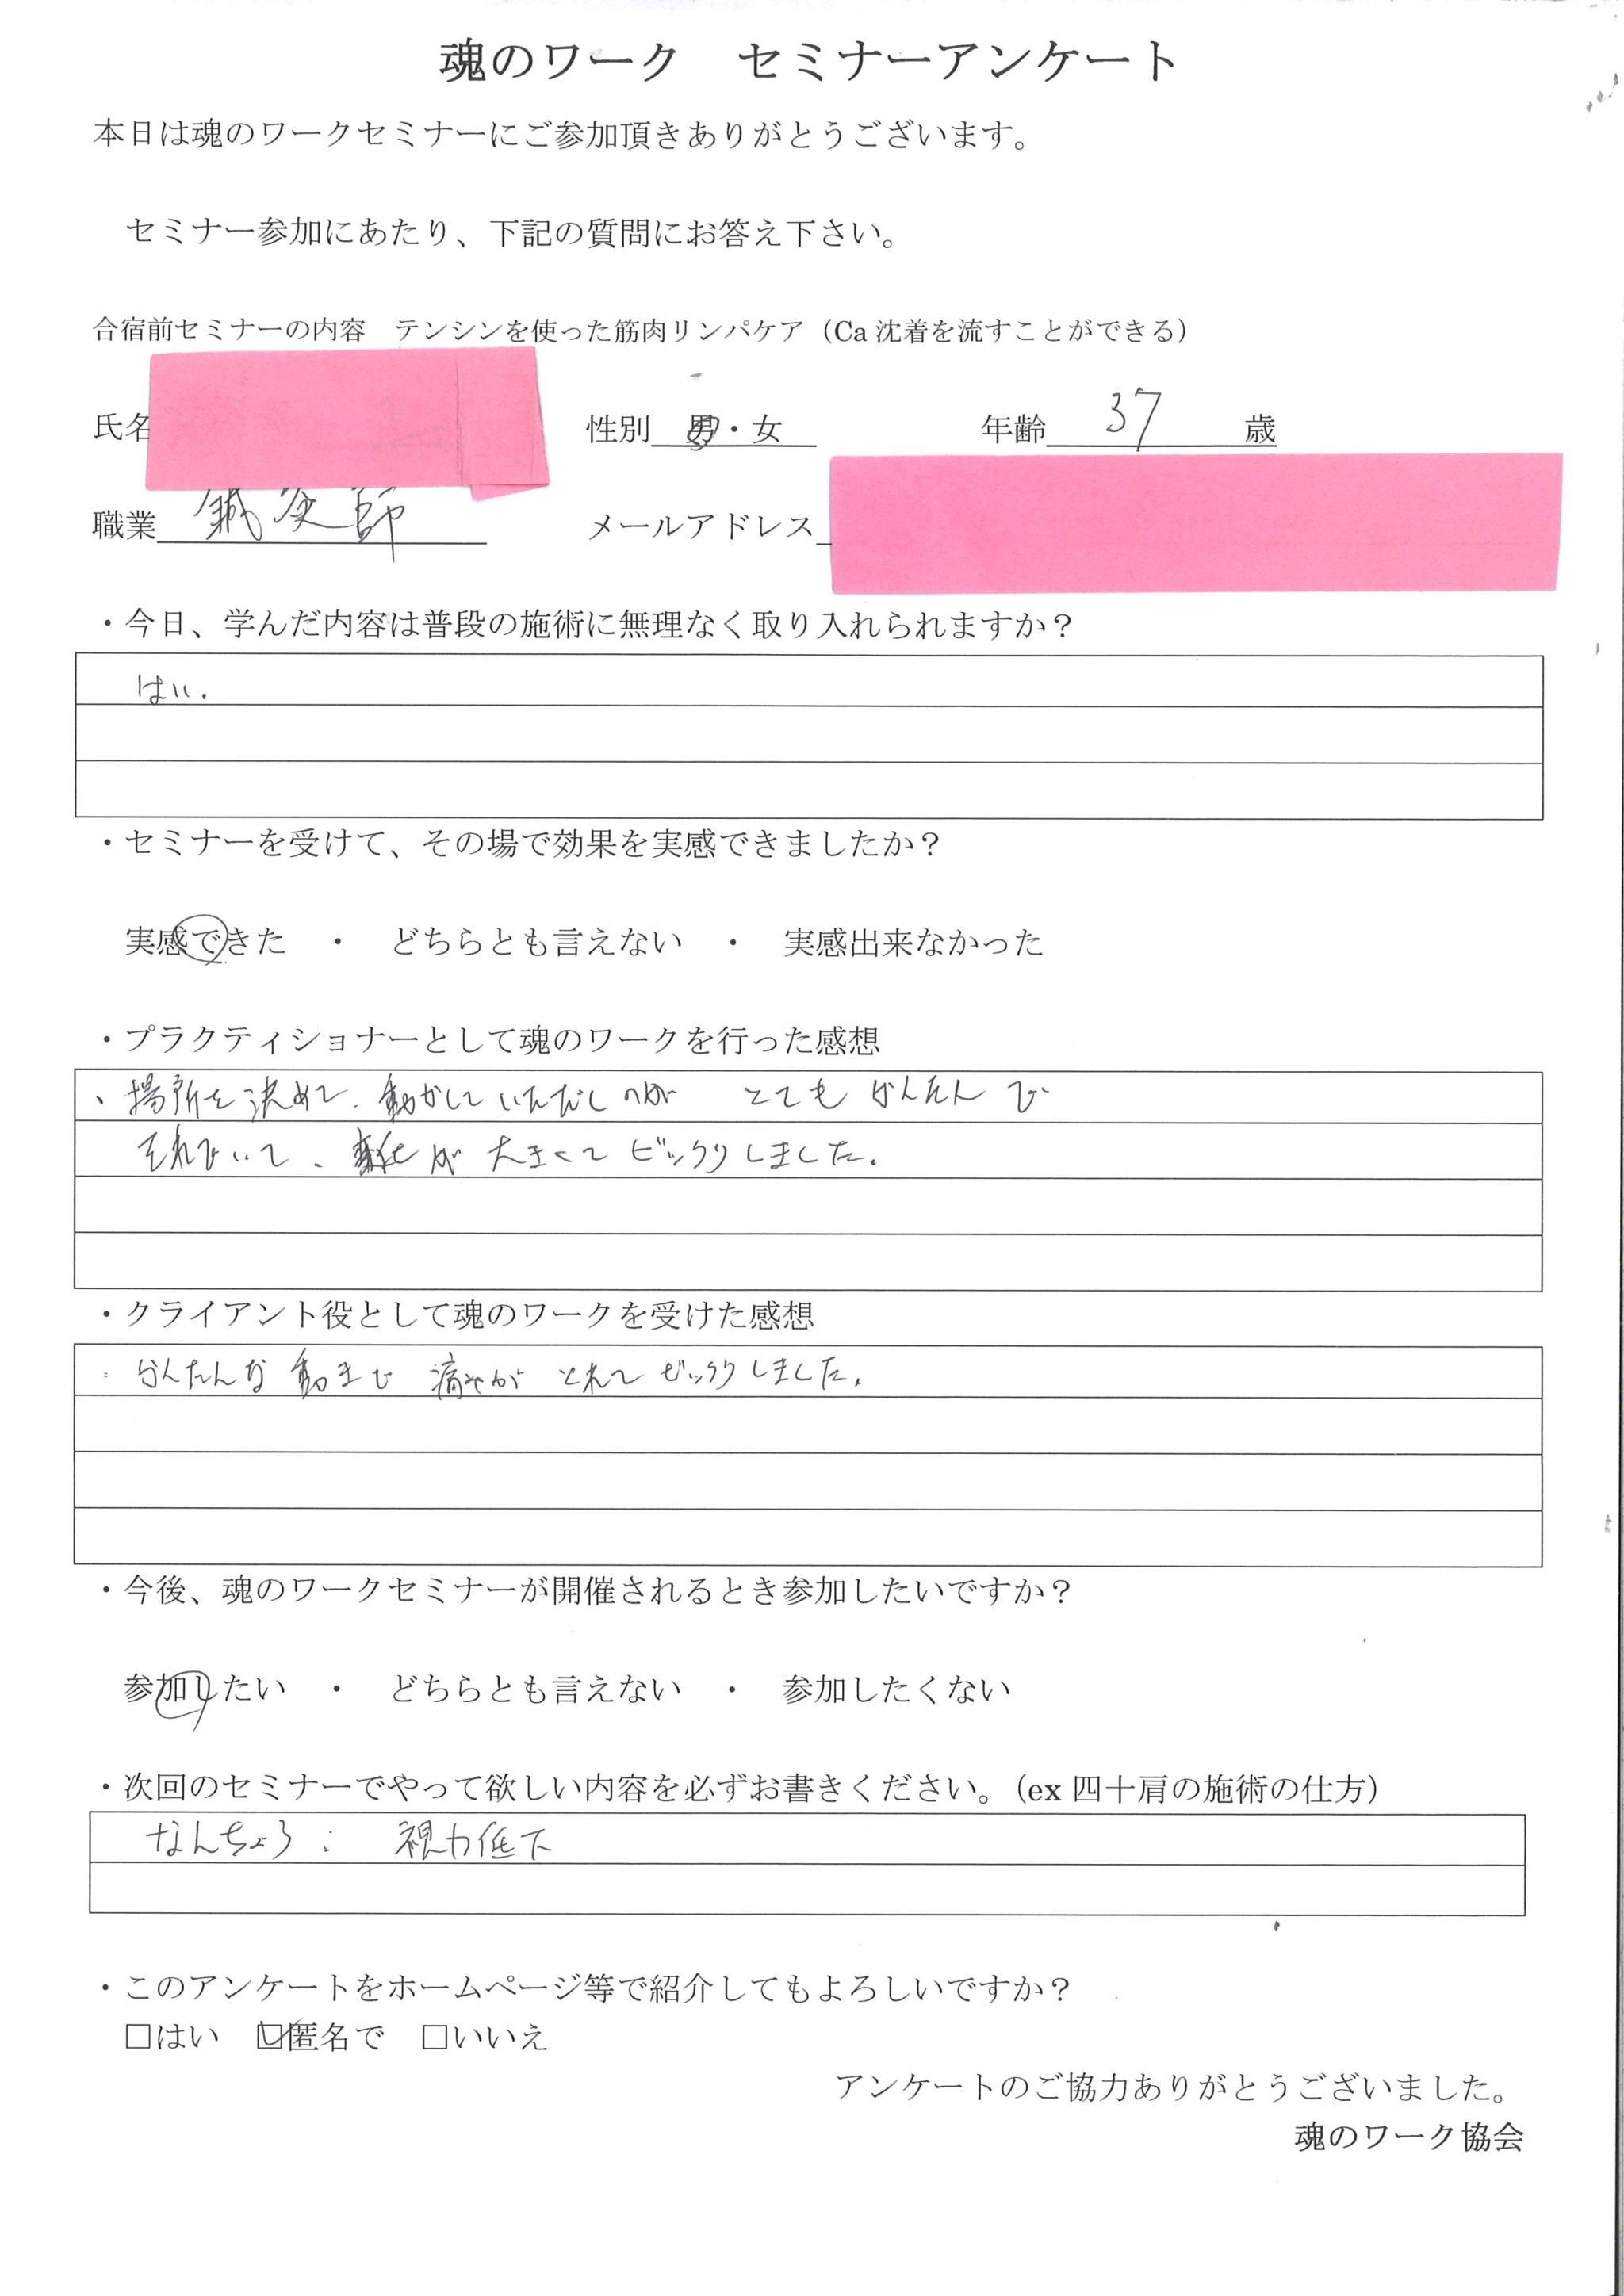 魂のワーク　セミナーアンケート
本日は魂のワークセミナーにご参加頂きありがとうございます。
セミナー参加にあたり、下記の質問にお答え下さい。
合宿前セミナーの内容　テンシンを使った筋肉リンパケア（Ca 沈着を流すことができる）
氏名　性別　男・女　年齢　37　歳
職業　鍼灸師　メールアドレス
・今日、学んだ内容は普段の施術に無理なく取り入れられますか？
はい.
・セミナーを受けて、その場で効果を実感できましたか？
実感できた　・　どちらとも言えない　・　実感出来なかった
・プラクティショナーとして魂のワークを行った感想
、場所を決めて、動かしていただしのが　とても かんたん で
それでいて、変化が 大きくて ビックリしました。
・クライアント役として魂のワークを受けた感想
かんたんな 動きで 痛みが とれて ビックリしました。
・今後、魂のワークセミナーが開催されるとき参加したいですか？
参加したい　・　どちらとも言えない　・　参加したくない
・次回のセミナーでやって欲しい内容を必ずお書きください。（ex 四十肩の施術の仕方）
なんちょう：　視力低下
・このアンケートをホームページ等で紹介してもよろしいですか？
□はい　☑匿名で　□いいえ
アンケートのご協力ありがとうございました。
魂のワーク協会